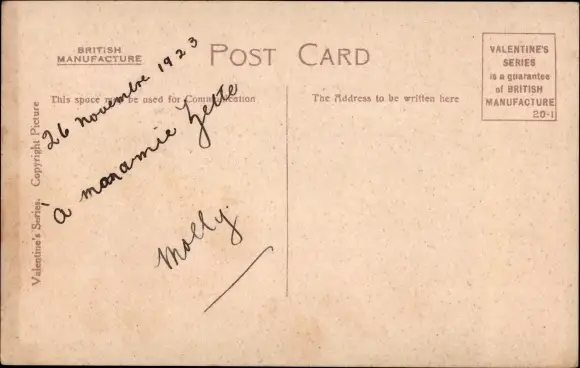 BRITISH
MANUFACTURE
POST CARD
VALENTINE'S
SERIES
is a guarantee
of BRITISH
MANUFACTURE
20-1
This space may be used for Communication
The Address to be written here
Valentine's Series. Copyright Picture
26 novembre 1923
à manamie Zette
Molly.